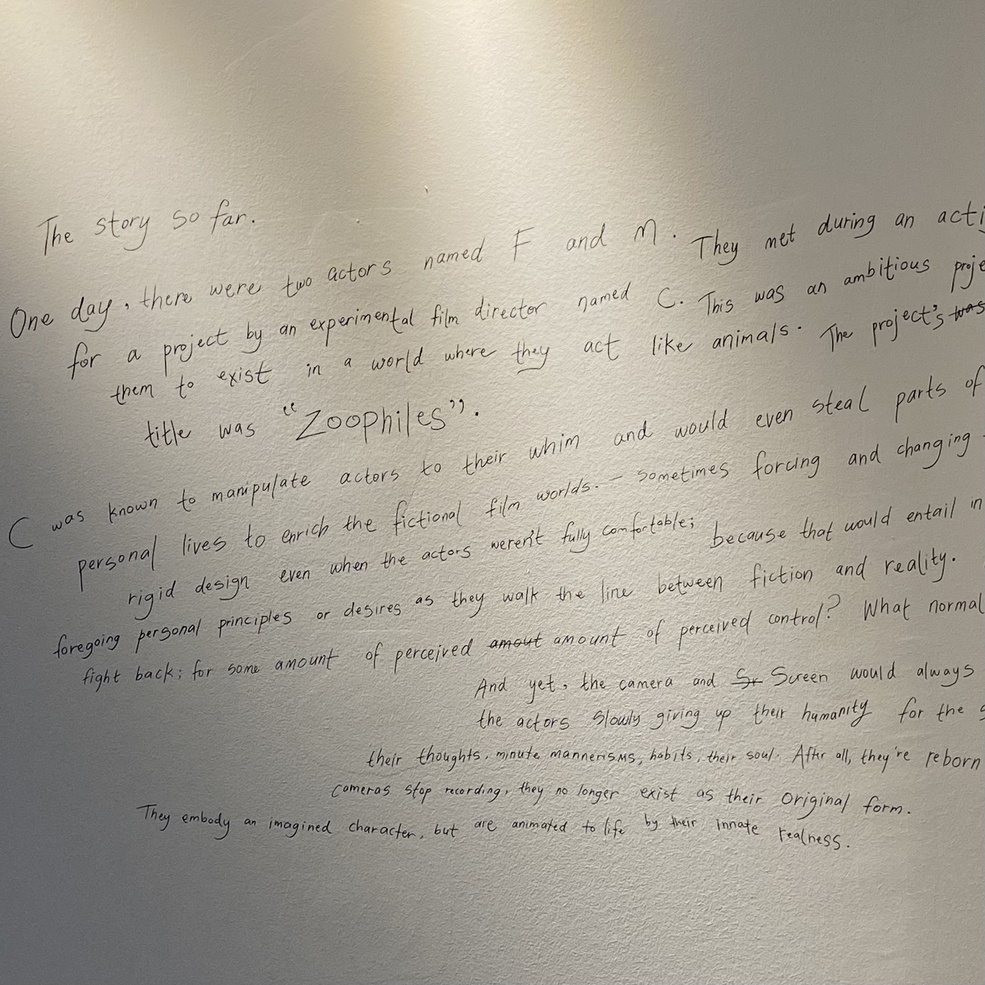 The story so far.
One day, there were two actors named F and M. They met during an acti
for a project by an experimental film director named C. This was an ambitious proje
them to exist in a world where they act like animals. The project's was
title was "Zoophiles".
C was known to manipulate actors to their whim and would even steal parts of
personal lives to enrich the fictional film worlds. — sometimes forcing and changing
rigid design even when the actors weren't fully comfortable; because that would entail in
foregoing personal principles or desires as they walk the line between fiction and reality.
fight back; for some amount of perceived amout amount of perceived control? What normal
And yet, the camera and Sr Screen would always
the actors slowly giving up their humanity for the s
their thoughts, minute mannerisms, habits, their soul. After all, they're reborn
cameras stop recording, they no longer exist as their original form.
They embody an imagined character, but are animated to life by their innate realness.